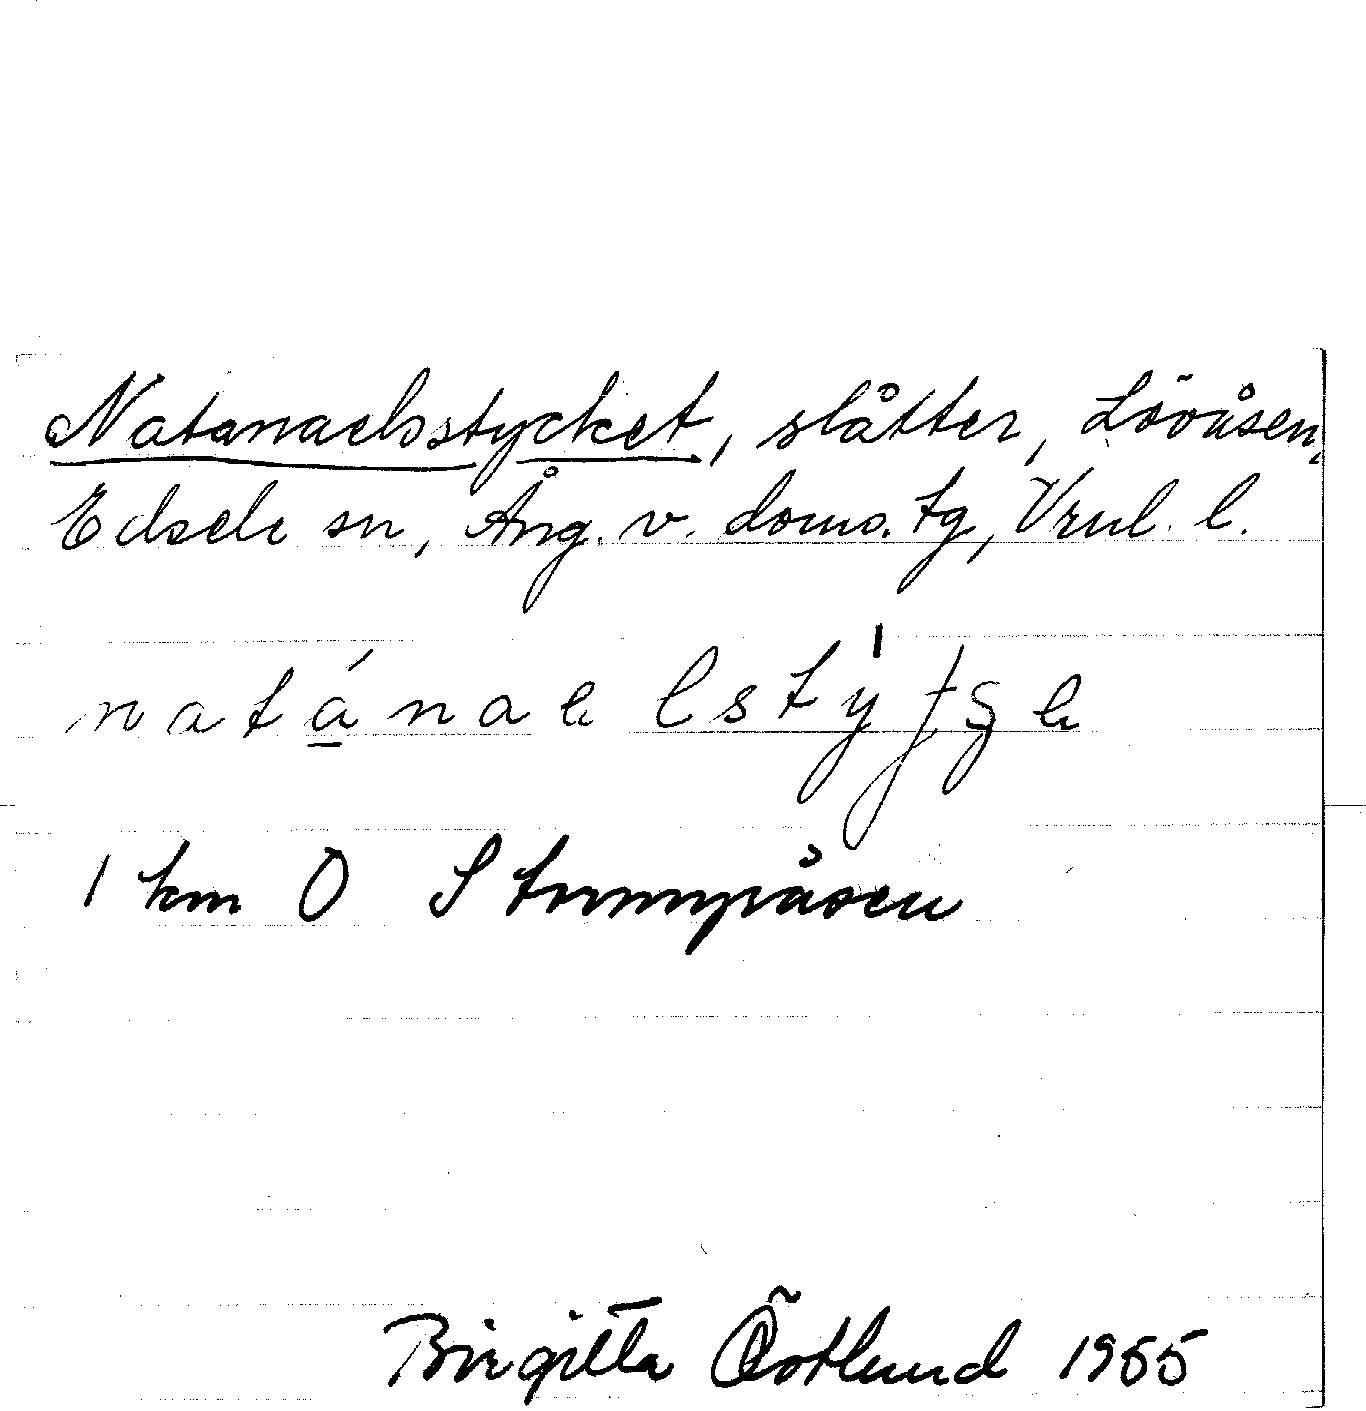 Natanaelsstycket, slåtter, Lövåsen,
Edsele sn, Ång. v. doms. tg, Vrnl. l.
natánaelstýʃʂe
1 km O Strumpåsen
Birgitta Östlund 1955